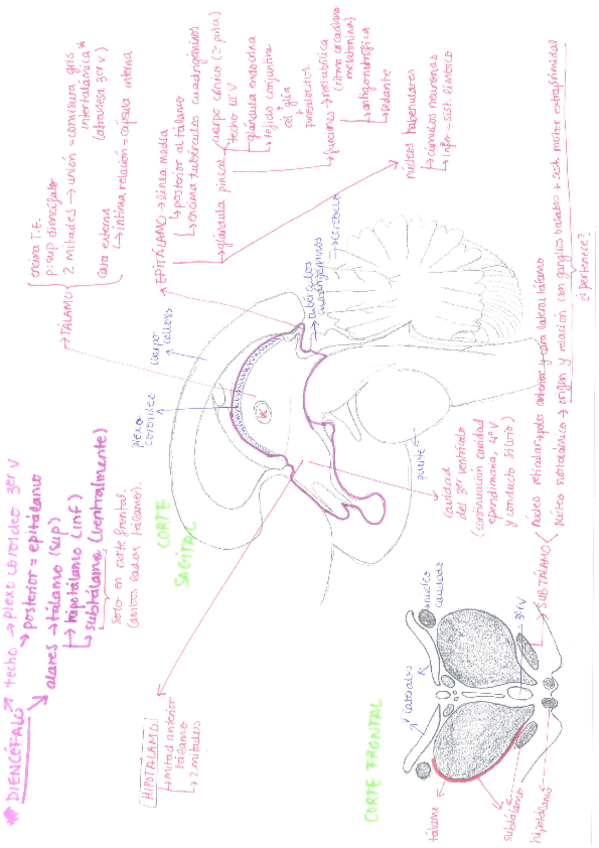 DIENCÉFALO
techo → plexo coroideo 3er V
posterior = epitálamo
alares → tálamo (sup)
hipotálamo (inf)
subtálamo (ventralmente)
solo en corte frontal
(ambos lados tálamo).
TÁLAMO
encima T.E.
p. sup diencéfalo
2 mitades → unión = comisura gris
intertalámica*
(atraviesa 3er V)
cara externa
íntima relación = cápsula interna
EPITÁLAMO → línea media
posterior al tálamo
encima tubérculos cuadrigéminos
glándula pineal
cuerpo cónico (≃ piña)
techo III V
glándula endocrina
tejido conjuntivo
+
cél glía
+
pinealocitos
funciones → metabólica
(ritmo circadiano
melatonina)
antigonadotrófica
sedante
núcleos habenulares
cúmulos neuronas
infor = sist. límbico
CORTE
SAGITAL
plexo
coroideo
cuerpo
calloso
tubérculos
cuadrigéminos
cerebelo
puente
cavidad
del 3er ventrículo
(continuación cavidad
ependimaria, 4º V
y conducto Silvio)
HIPOTÁLAMO
mitad anterior
tálamo
2 mitades
CORTE FRONTAL
V laterales
núcleo
caudado
3er V
tálamo
subtálamo
hipotálamo
SUBTÁLAMO
núcleo reticular → polo anterior y cara lateral tálamo
núcleo subtalámico → origen y relación con ganglios basales + sist. motor extrapiramidal
¿pertenece?